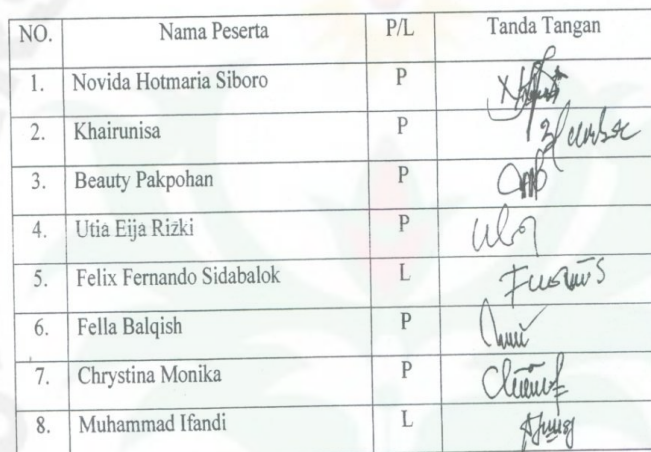 NO. Nama Peserta P/L Tanda Tangan
1. Novida Hotmaria Siboro P
2. Khairunisa P
3. Beauty Pakpohan P
4. Utia Eija Rizki P
5. Felix Fernando Sidabalok L
6. Fella Balqish P
7. Chrystina Monika P
8. Muhammad Ifandi L